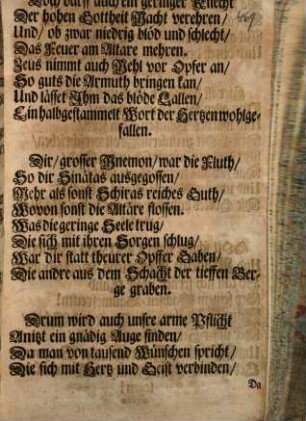 Doch darff auch ein geringer Knecht
Der hohen Gottheit Macht verehren/
Und/ ob zwar niedrig blöd und schlecht/
Das Feuer am Altare mehren.
Zeus nimmt auch Mehl vor Opfer an/
So guts die Armuth bringen kan/
Und lässet Ihm das blöde Lallen/
Ein halbgestammelt Wort der Hertzen wohlge-
fallen.
Dir/ grosser Mnemon/ war die Fluth/
So dir Sinätas ausgegossen/
Mehr als sonst Schiras reiches Guth/
Wovon sonst die Altäre flossen.
Was die geringe Seele trug/
Die sich mit ihren Sorgen schlug/
War dir statt theurer Opffer Gaben/
Die andre aus dem Schacht der tieffen Ber-
ge graben.
Drum wird auch unsre arme Pflicht
Anitzt ein gnädig Auge finden/
Da man von tausend Wünschen spricht/
Die sich mit Hertz und Geist verbinden/
Da